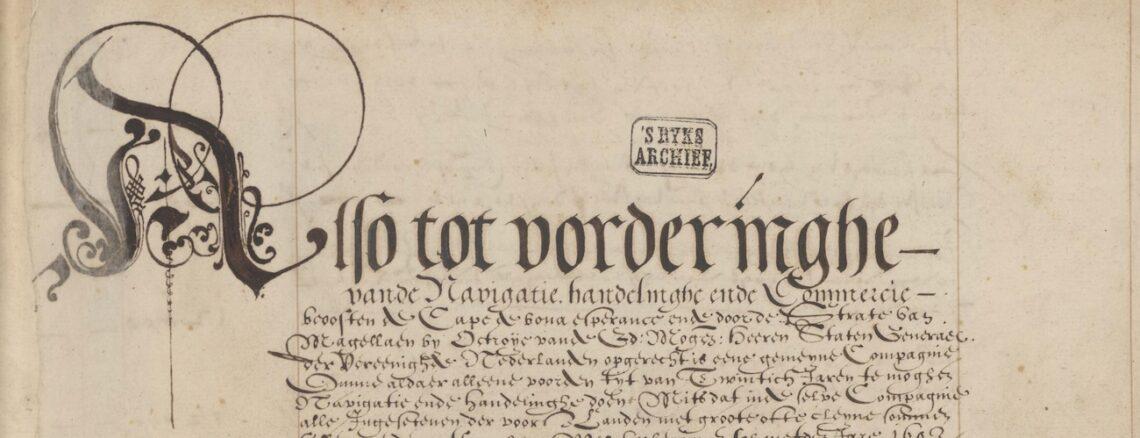 'S RYKS
ARCHIEF,
Alsso tot vorderinghe
vande Navigatie. handelinghe ende Commercie
beoosten de Cape de bona esperance ende door de Strate van
Magellaen by Octroye vande Ed: Moge: Heeren Staten Generael.
der Vereenighde Nederlanden opgerecht is eene gemeyne Compagnie
omme aldaer alleene voorden tyt van Twintich Jaren te mogen
Navigatie ende handelinghe doen, Mits dat inde selve Compagnie
alle Ingesetenen der voors. Landen met groote ofte cleyne sommen